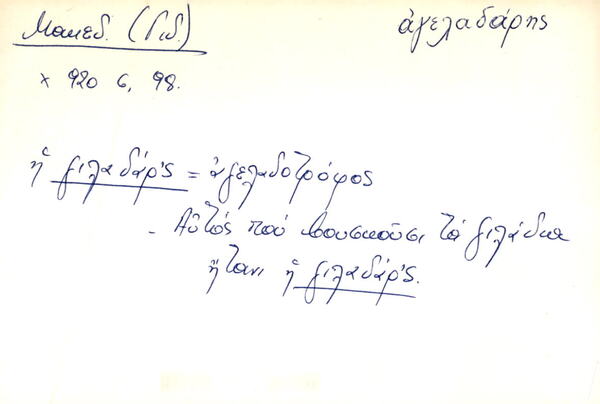 Μακεδ. (Γιδ.)
ἀγελαδάρης
χ 920 6, 98.
ἡ γιλαδάρ'ς = ἀγελαδοτρόφος
- Αὐτός πού βουσκοῦσι τά γιλάδια
ἤτανι ἡ γιλαδάρ'ς.